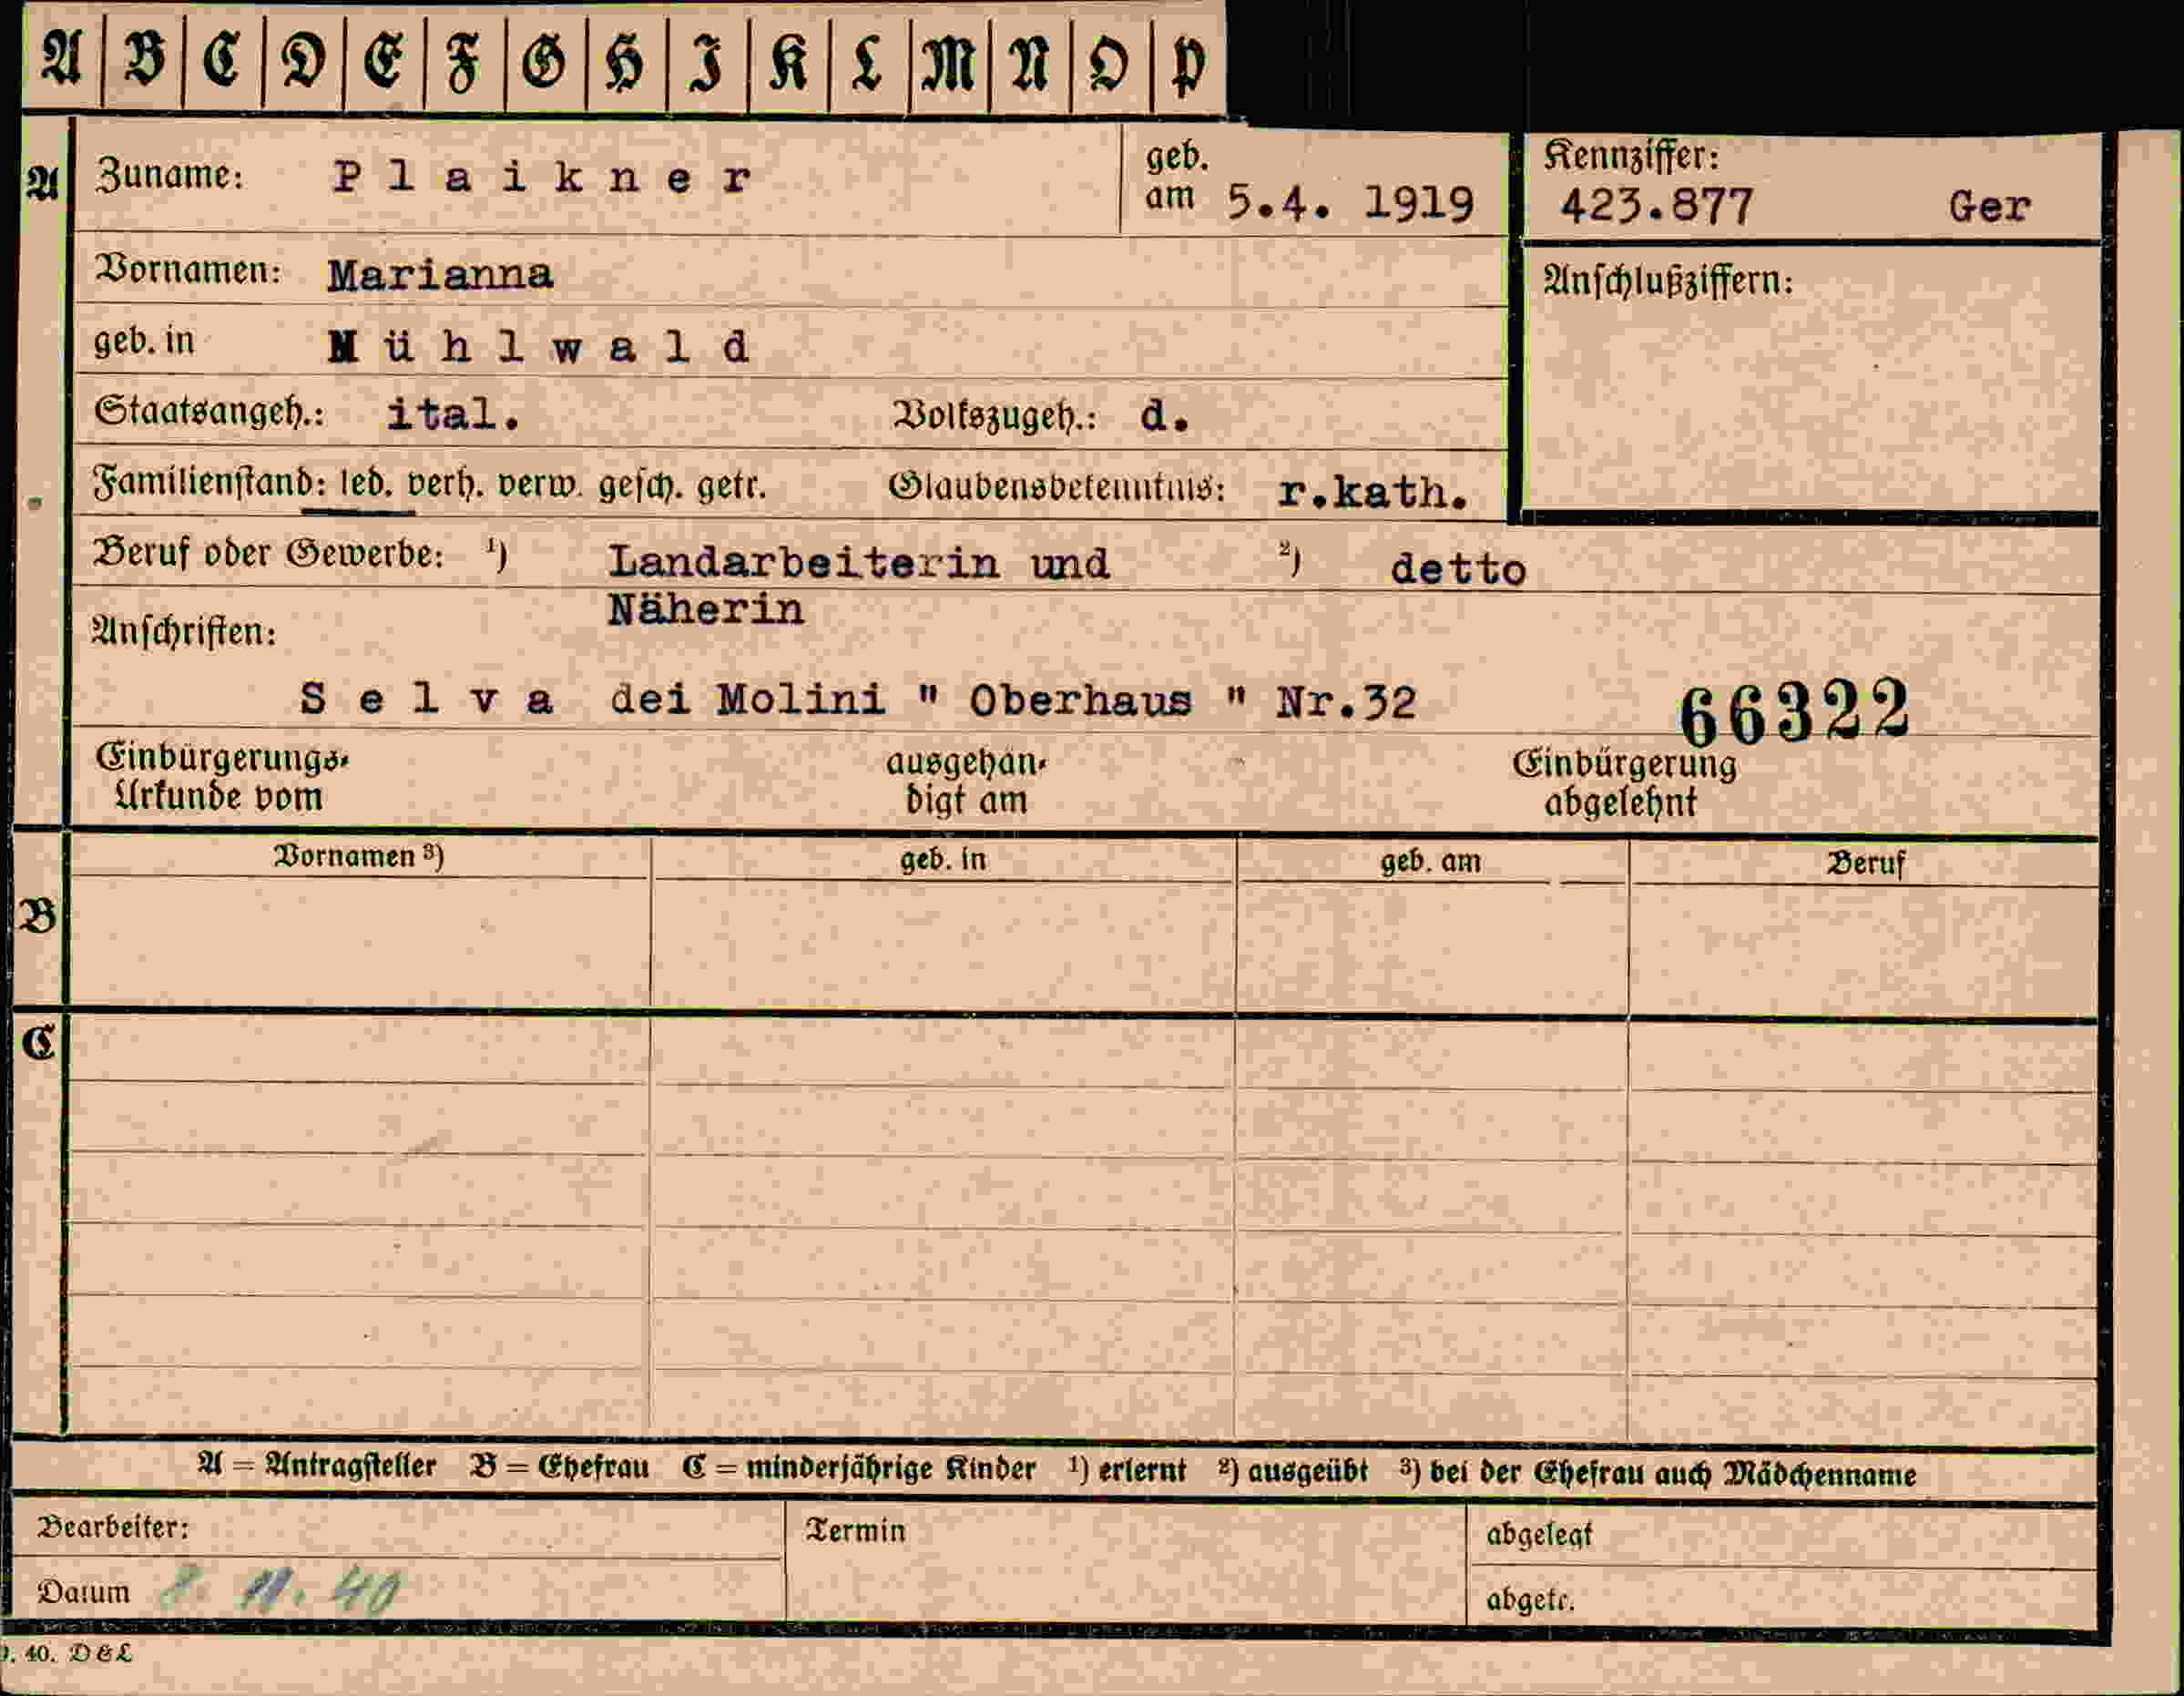 A B C D E F G H I K L M N O P
A Zuname: Plaikner geb. am 5.4. 1919 Kennziffer: 423.877 Ger
Vornamen: Marianna Anschlußziffern:
geb. in Mühlwald
Staatsangeh.: ital. Volkszugeh.: d.
Familienstand: led. verh. verw. gesch. getr. Glaubensbekenntnis: r.kath.
Beruf oder Gewerbe: 1) Landarbeiterin und 2) detto
Näherin
Anschriften:
Selva dei Molini " Oberhaus " Nr.32 66322
Einbürgerungs- ausgehän- Einbürgerung
Urkunde vom digt am abgelehnt
Vornamen 3) geb. in geb. am Beruf
B
C
A = Antragsteller B = Ehefrau C = minderjährige Kinder 1) erlernt 2) ausgeübt 3) bei der Ehefrau auch Mädchenname
Bearbeiter: Termin abgelegt
Datum 11. 40 abgetr.
40. D&L